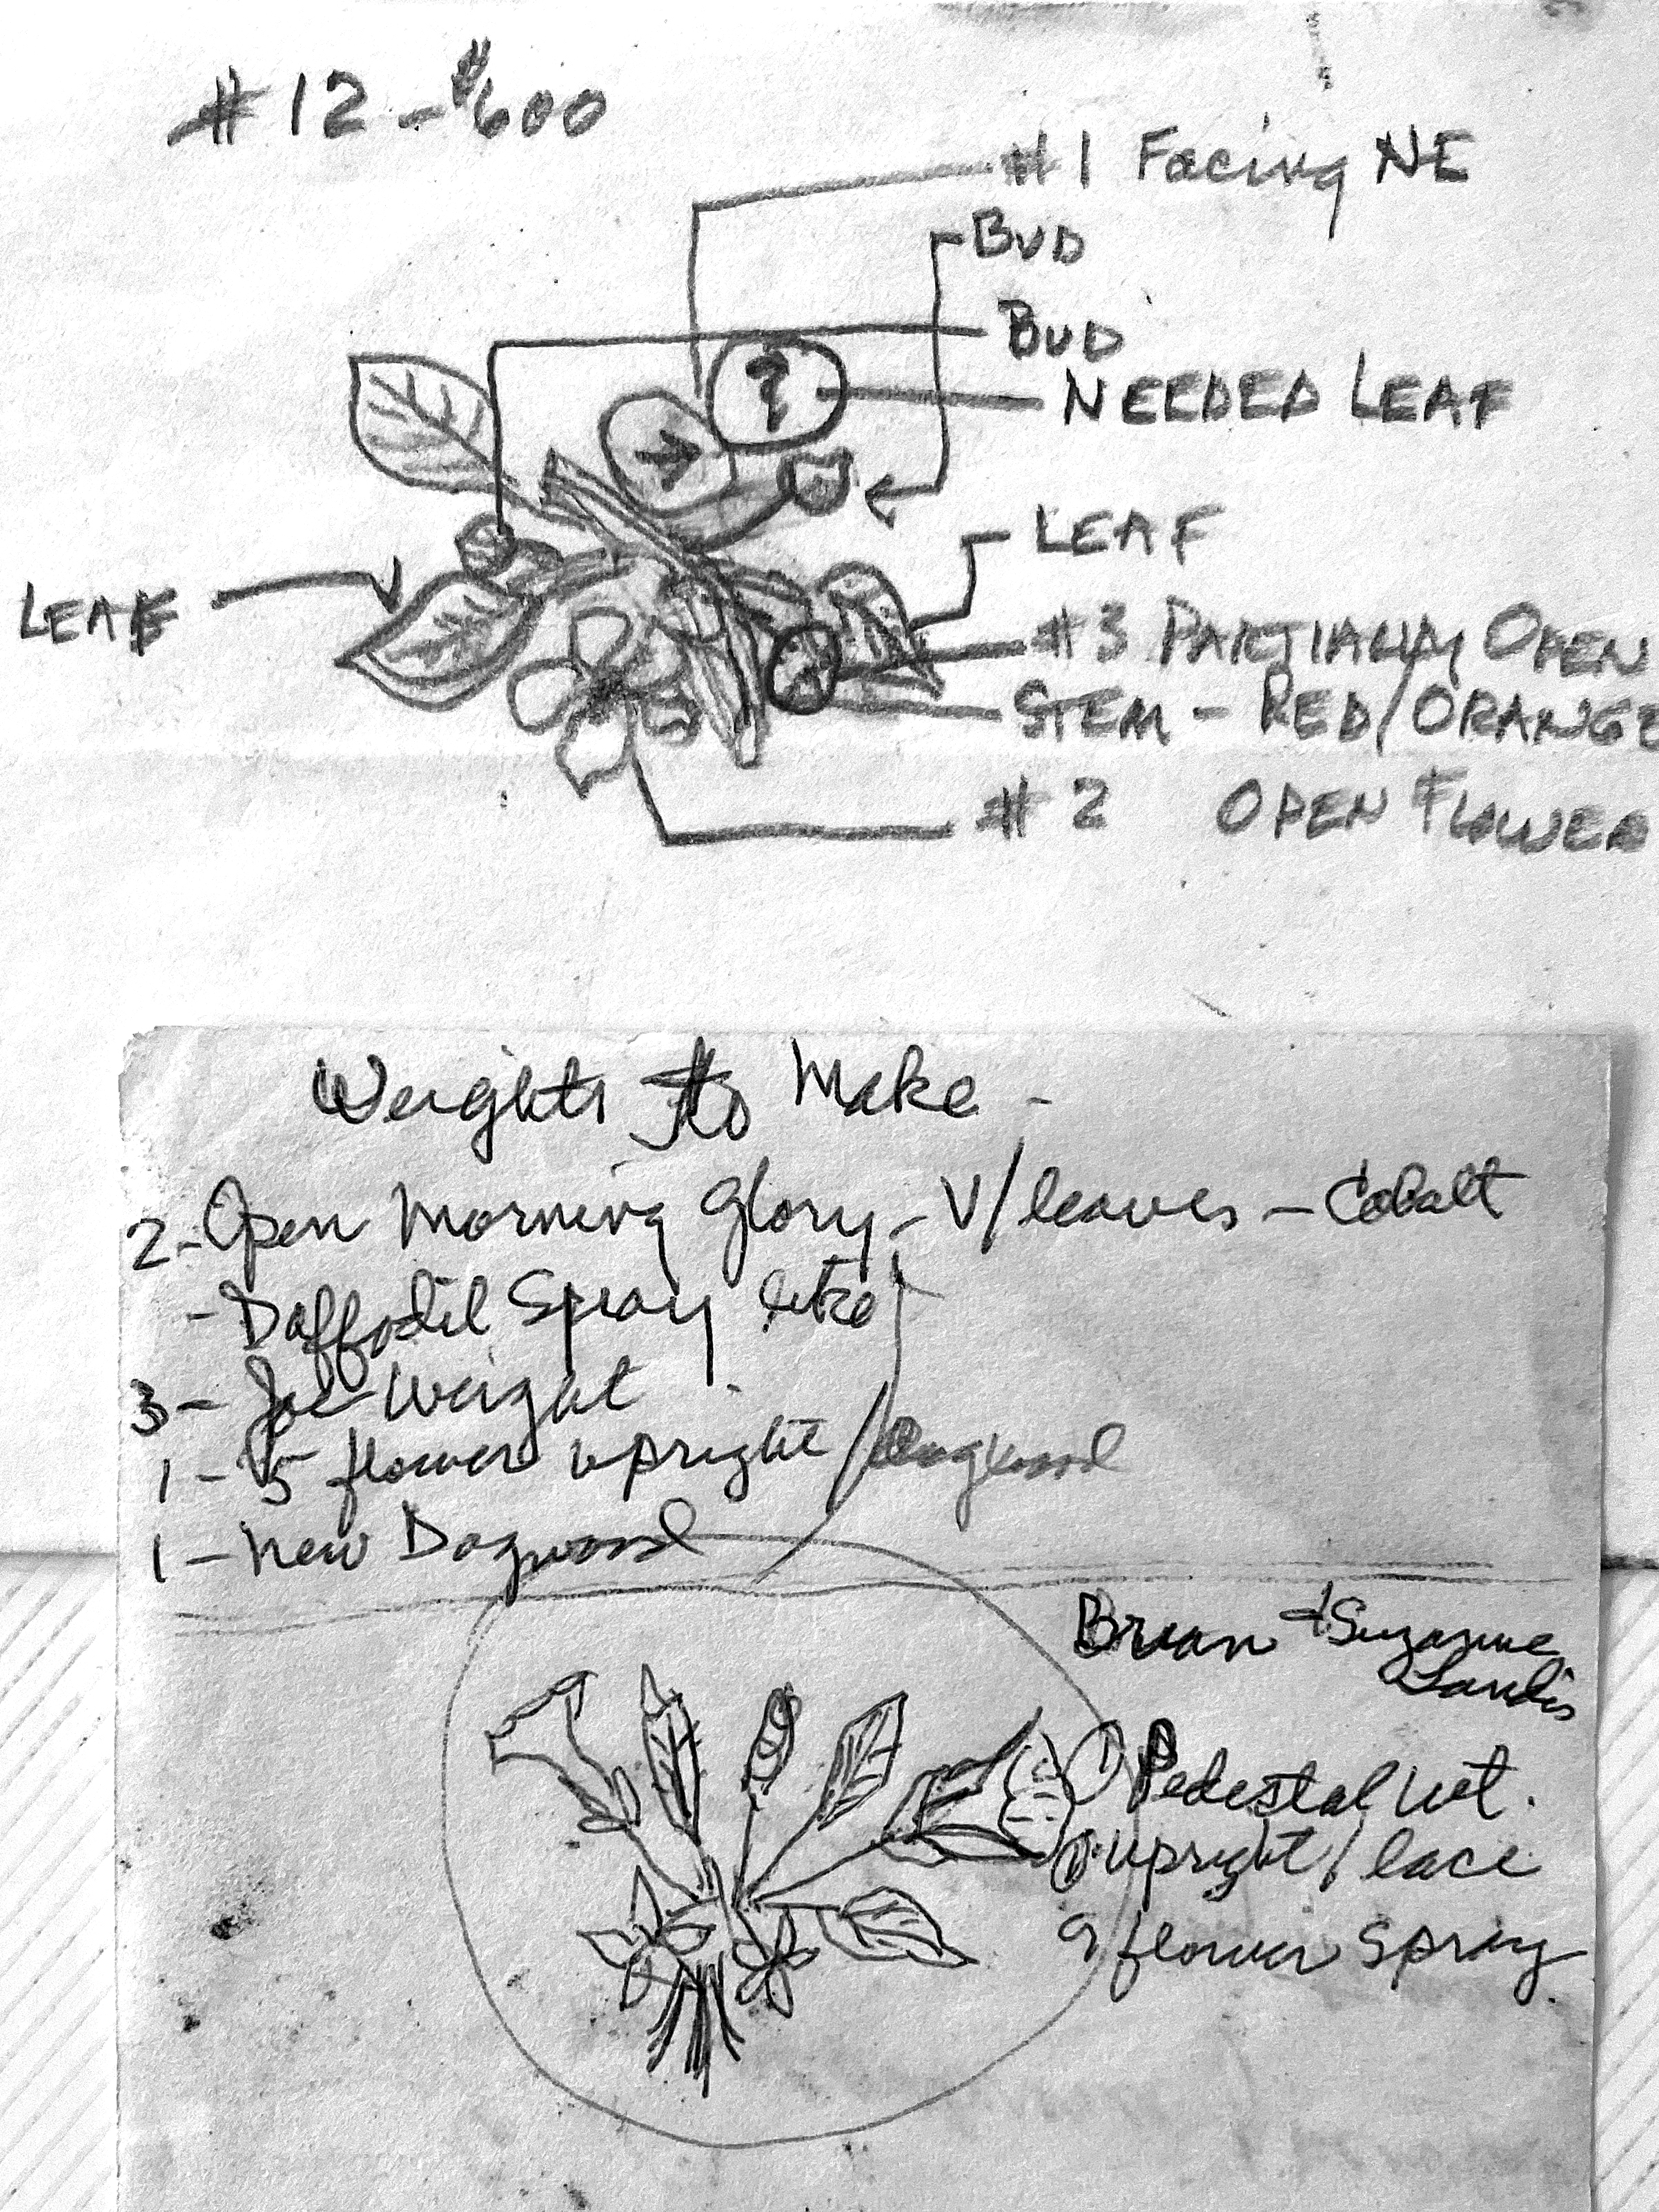 #12 - $600
#1 Facing NE
BUD
BUD
?
NEEDED LEAF
LEAF
LEAF
#3 PARTIALLY OPEN
STEM - RED/ORANGE
#2 OPEN FLOWER
Weights to Make -
2 - Open Morning Glory - V/leaves - Cobalt
- Daffodil Spray like
3 - Joe Weight
1 - 5 flower upright / Dogwood
1 - New Dogwood
Brian + Suzanne
Landis
① Pedestal Wt.
① upright / lace
9 flower spray